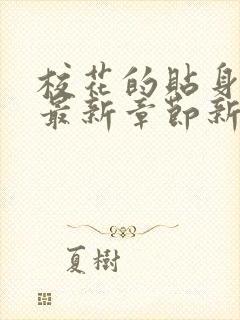 校花的貼身
最新章節新
夏樹